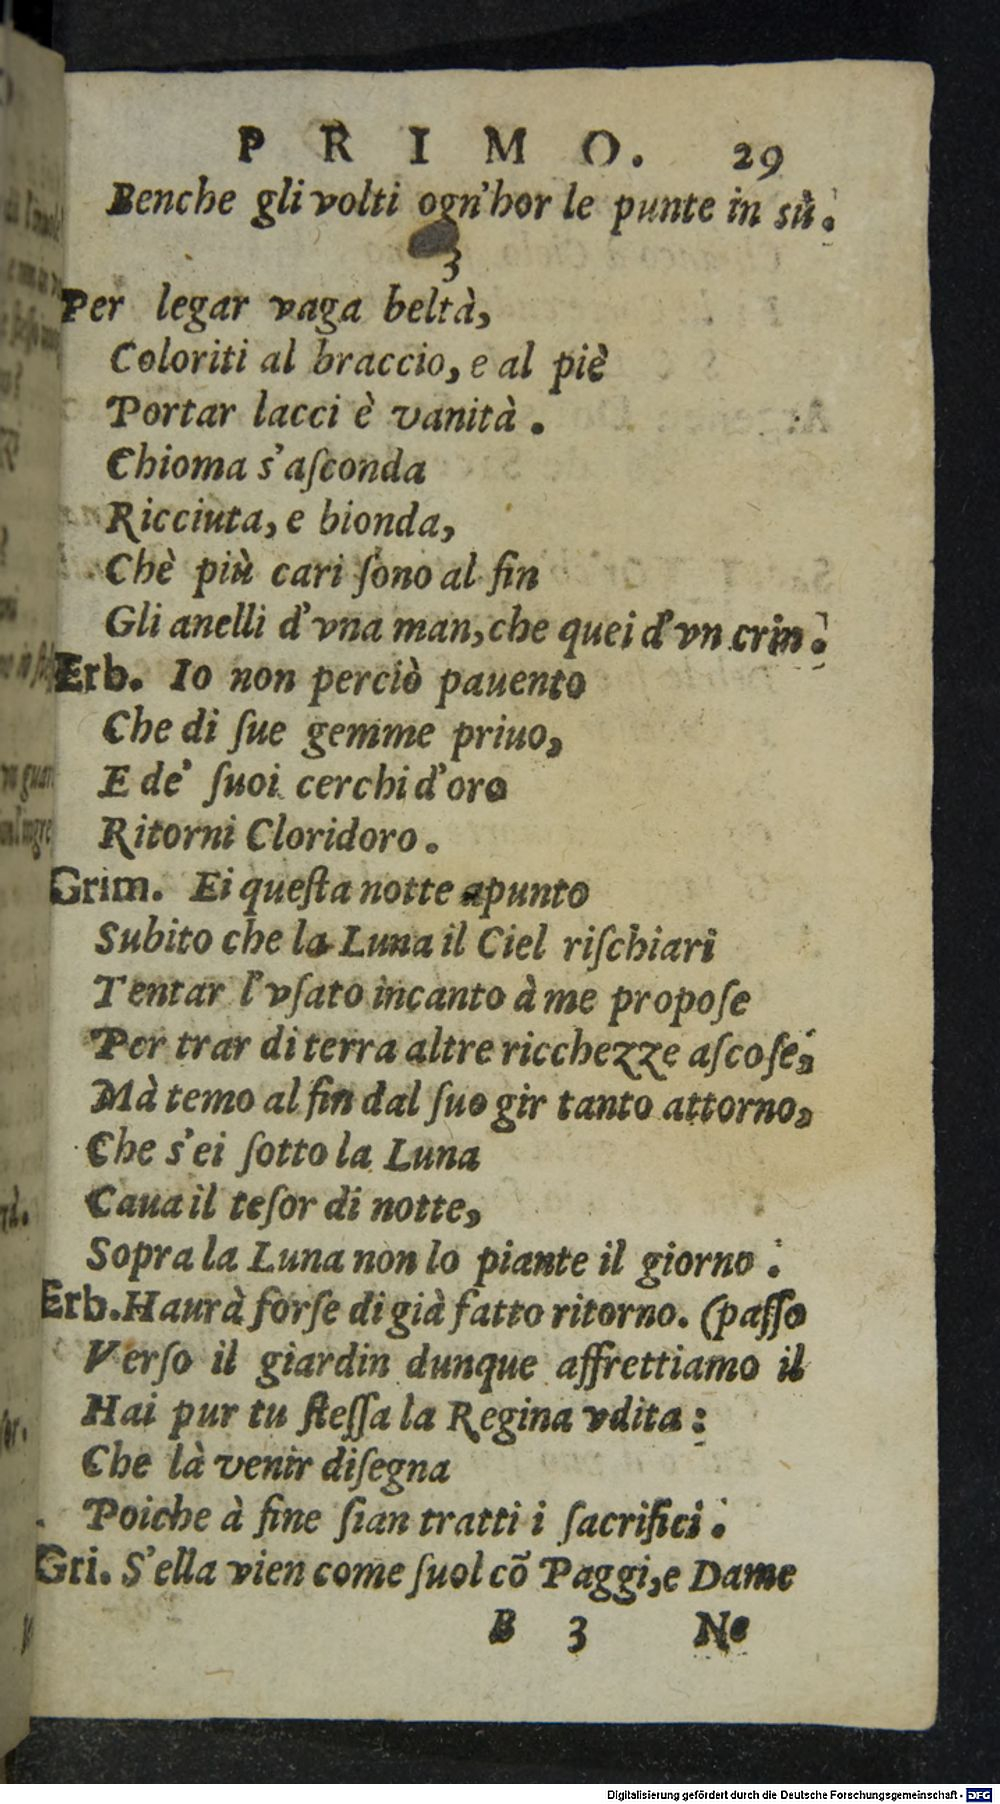 PRIMO. 29
Benche gli volti ogn'hor le punte in sù.
3
Per legar vaga beltà,
Coloriti al braccio, e al piè
Portar lacci è vanità.
Chioma s'aſconda
Ricciuta, e bionda,
Chè più cari ſono al fin
Gli anelli d'vna man, che quei d'vn crin.
Erb. Io non perciò pauento
Che di ſue gemme priuo,
E de' ſuoi cerchi d'oro
Ritorni Cloridoro.
Grim. Ei queſta notte apunto
Subito che la Luna il Ciel riſchiari
Tentar l'vſato incanto à me propoſe
Per trar di terra altre ricchezze aſcoſe,
Mà temo al fin dal ſuo gir tanto attorno,
Che s'ei ſotto la Luna
Caua il teſor di notte,
Sopra la Luna non lo piante il giorno.
Erb. Haurà forſe di già fatto ritorno. (paſſo
Verſo il giardin dunque affrettiamo il
Hai pur tu ſteſſa la Regina vdita:
Che là venir diſegna
Poiche à fine ſian tratti i ſacrifici.
Gri. S'ella vien come ſuol cõ Paggi, e Dame
B 3 Ne
Digitalisierung gefördert durch die Deutsche Forschungsgemeinschaft - DFG